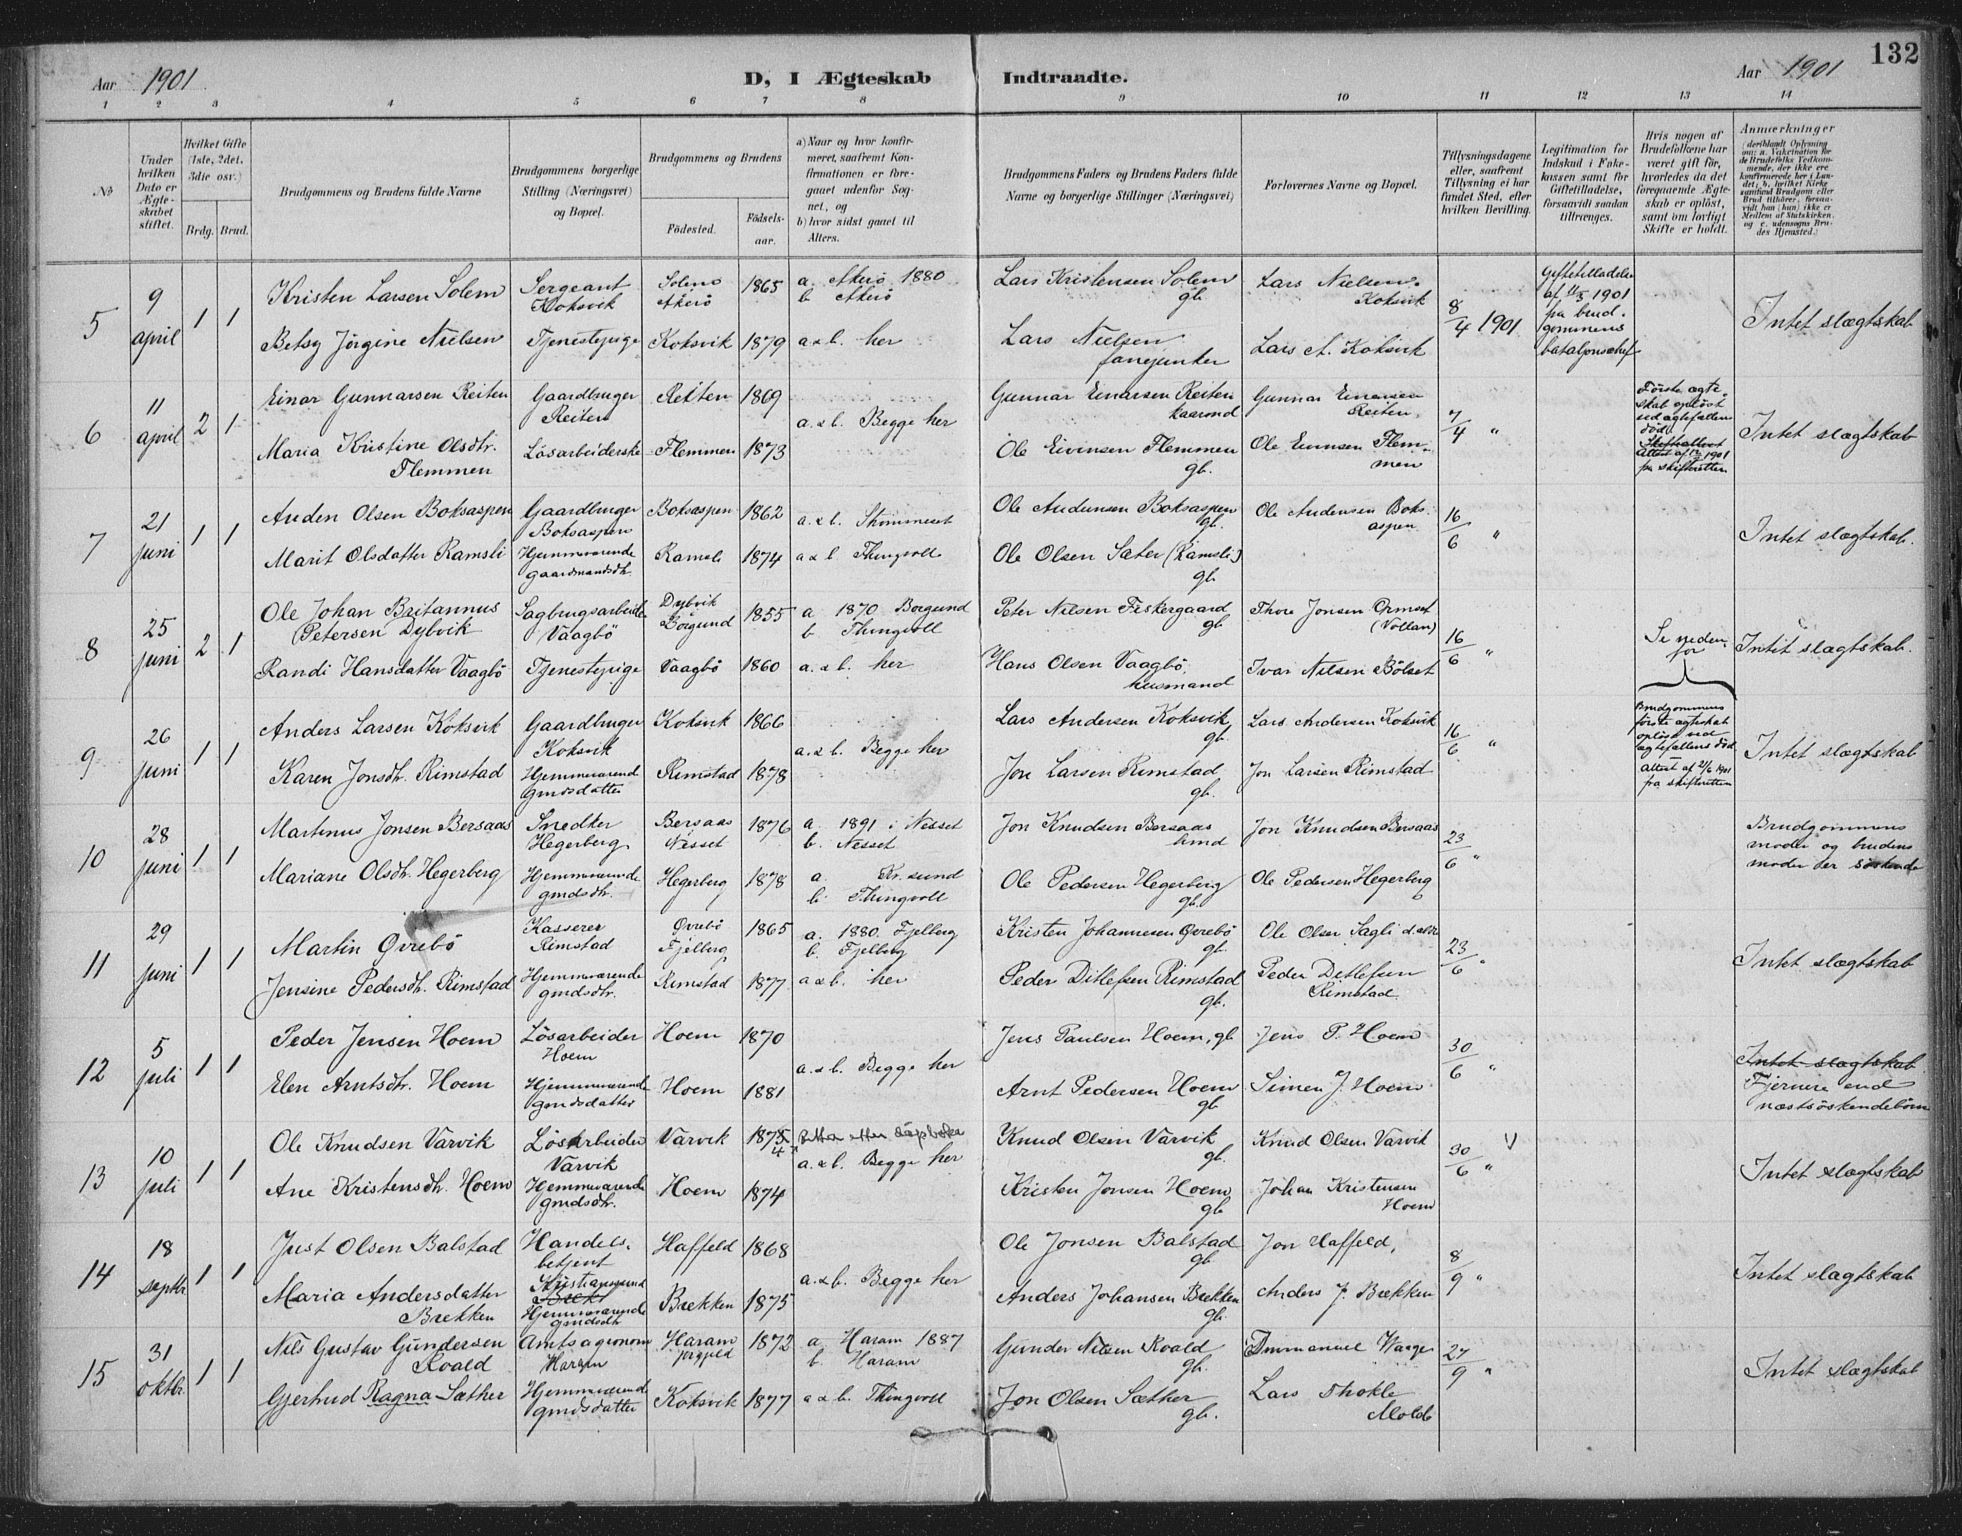 132
Aar 1901 D, I Ægteskab Indtraadte. Aar 1901
1 2 3 4 5 6 7 8 9 10 11 12 13 14
No
Under hvilken Dato er Ægteskabet stiftet.
Hvilket Gifte (1ste, 2det, 3die osv.)
Brdg. Brud.
Brudgommens og Brudens fulde Navne
Brudgommens borgerlige Stilling (Næringsvei) og Bopæl.
Brudgommens og Brudens
Födested.
Födselsaar.
a) Naar og hvor konfirmeret, saafremt Konfirmationen er foregaaet udenfor Sognet, og
b) hvor sidst gaaet til Alters.
Brudgommens Faders og Brudens Faders fulde Navne og borgerlige Stillinger (Næringsvei)
Forlovernes Navne og Bopæl.
Tillysningsdagene eller, saafremt Tillysning ei har fundet Sted, efter hvilken Bevilling.
Legitimation for Indskud i Enkekassen samt for Giftetilladelse, forsaavidt saadan tiltrænges.
Hvis nogen af Brudefolkene har været gift för, hvorledes da det foregaaende Ægteskab er oplöst, samt om lovligt Skifte er holdt.
Anmærkninger (deriblandt Oplysning om: a. Vakcination for de Brudefolks Vedkommende, der ikke ere konfirmerede her i Landet; b. hvilket Kirkesamfund Brudgom eller Brud tilhörer, forsaavidt han (hun) ikke er Medlem af Statskirken, og c. udensogns Brudes Hjemsted.)
5 9 april 1 1
Kristen Larsen Solem Sergeant Koksvik Solem Akerö 1865 a. Akerö 1880 b. Akerö Lars Kristensen Solem gb. Lars Nielsen Koksvik 8/4 1901 Giftetilladelse af 11/3 1901 fra brudgommens bataljonschef Intet slægtskab
Betsy Jörgine Nielsen Tjenestepige Koksvik 1879 a & b. her Lars Nielsen fanejunker Lars A. Koksvik
6 11 april 2 1
Einar Gunnarsen Reiten Gaardbruger Reiten Reiten 1869 a. & b. Begge her Gunnar Einarsen Reiten kaarmd Gunnar Einarsen Reiten. 7/4 " Förste ægteskab oplöst ved ægtefællens död. Attest af 1901 fra skifteretten Intet slægtskab
Maria Kristine Olsdtr. Flemmen Lösarbeiderske Flemmen 1873 Ole Eivinsen Flemmen gb. Ole Flemmen
7 21 juni 1 1
Anden Olsen Boksaspen Gaardbruger Boksaspen Boksaspen 1862 a. & b. Ole Andersen Boksaspen gb. Ole Andersen Boksaspen 16/6 " Intet slægtskab.
Marit Olsdatter Ramsli Hjemmeværende gaardmandsdtr. Ramsli 1874 a & b Thingvoll Ole Olsen Sæter (Ramsli) gb.
8 25 juni 2 1
Ole Johan Britannus Petersen Dybvik Sagbrugsarbeider Vaagbö Dybvik Borgund 1855 a. 1870 Borgund b. Thingvoll Peter Nilsen Fiskergaard gb Thore Jonsen Ormset (Vollan) 16/6 " Se nedenfor Intet slægtskab.
Randi Hansdatter Vaagbö Tjenestepige Vaagbö 1860 a. & b. her Hans Olsen Vaagbö, husmand Ivar Nilsen Bölset
9 26 juni 1 1
Anders Larsen Koksvik Gaardbruger Koksvik Koksvik 1866 a. & b. Begge her Lars Andersen Koksvik gb. Lars Andersen Koksvik 16/6 " Brudgommens förste ægteskab oplöst ved ægtefællens död. Attest af 21/6 1901 fra skifteretten Intet slægtskab
Karen Jonsdtr. Rimstad Hjemmeværend gmdsdatter Rimstad 1878 Jon Larsen Rimstad gb. Jon Larsen Rimstad
10 28 juni 1 1
Martinus Jonsen Bersaas Snedker Hegerberg Bersaas Nesset 1876 a. 1891 i Nesset b. Nesset Jon Knudsen Bersaas hmd Jon Knudsen Bersaas 23/6 " Brudgommens moder og brudens moder er söskende
Mariane Olsdtr. Hegerberg Hjemmeværende gmdsdtr. Hegerberg 1878 a. Kr.sund b. Thingvoll Ole Pedersen Hegerberg gb. Ole Pedersen Hegerberg
11 29 juni 1 1
Martin Øvrebö Kasserer Rimstad Øvrebö Fjelberg 1865 a. 1880. Fjelberg b. Fjelberg Kristen Johannesen Øvrebö gb. Ole Olsen Sagli 23/6 " Intet slægtskab
Jensine Pedersdtr. Rimstad Hjemmeværende gmdsdtr. Rimstad 1877 a & b. her Peder Ditlefsen Rimstad gb. Peder Ditlefsen Rimstad
12 5 juli 1 1
Peder Jensen Hoem Lösarbeider Hoem Hoem 1870 a. & b. Begge her Jens Paulsen Hoem, gb Jens P. Hoem 30/6 " Intet slægtskab Fjernere end næstsöskendebörn
Elen Arntsdtr. Hoem Hjemmeværende gmdsdatter Hoem 1881 Arnt Pedersen Hoem gb. Simen J. Hoem
13 10 juli 1 1
Ole Knudsen Varvik Lösarbeider Varvik Varvik 1875 4 Rettet etter dåpboka a. & b. Begge her Knud Olsen Varvik gb. Knud Olsen Varvik 30/6 " Intet slægtskab
Ane Kristensdtr. Hoem Hjemmeværende gmdsdtr. Hoem 1874 Kristen Jonsen Hoem gb Johan Kristensen Hoem
14 18 septbr 1 1
Just Olsen Balstad Handelsbetjent Kristiansund Haffeld 1868 a. & b. Begge her Ole Jonsen Balstad gb Jon Haffeld, 8/9 " Intet slægtskab
Maria Andersdatter Brekken Hjemmeværende gmdsdtr Brekken 1875 Anders Johansen Brekken gb. Anders J. Brekken
15 31 oktbr 1 1
Nils Gustav Gundersen Roald Amtsagronom Haram Haram prgjeld 1872 a Haram 1887 b. Haram Gunder Nilsen Roald gb. Emmanuel Waage 27/9 " Intet slægtskab
Gjertrud Ragna Sæther Hjemmeværend gmdsdatter Koksvik 1877 a & b. Thingvoll Jon Olsen Sæther gb. Lars Thokle Molde